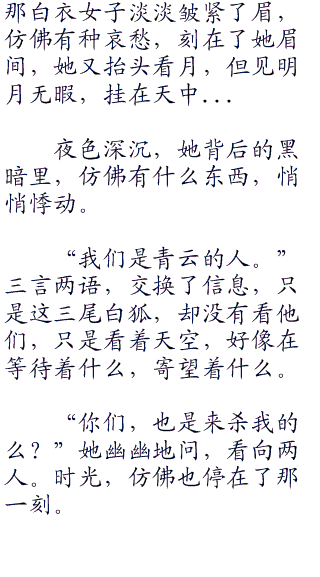 那白衣女子淡淡皱紧了眉，
仿佛有种哀愁，刻在了她眉
间，她又抬头看月，但见明
月无暇，挂在天中...
夜色深沉，她背后的黑
暗里，仿佛有什么东西，悄
悄悸动。
“我们是青云的人。”
三言两语，交换了信息，只
是这三尾白狐，却没有看他
们，只是看着天空，好像在
等待着什么，寄望着什么。
“你们，也是来杀我的
么？”她幽幽地问，看向两
人。时光，仿佛也停在了那
一刻。